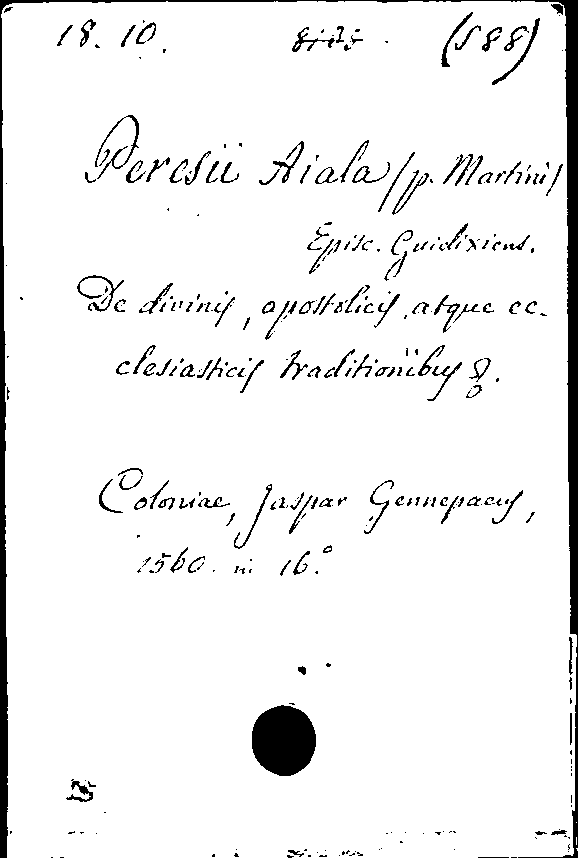 18. 10. (588)
Peresii Aiala (p. Martini)
Episc. Guidixiens.
De divinis, apostolicis, atque ec-
clesiasticis traditionibus
Coloniae, Jaspar Gennepaeus,
1560. in 16.°